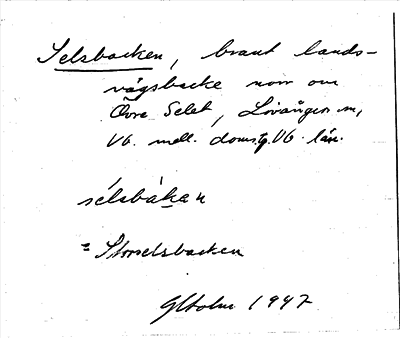 Selsbacken, brant lands-
vägsbacke norr om
Övre Selet, Lövånger sn,
Vb. mell. doms. Vb. län.
sélsbàkan
= Storselsbacken
GHolm 1947